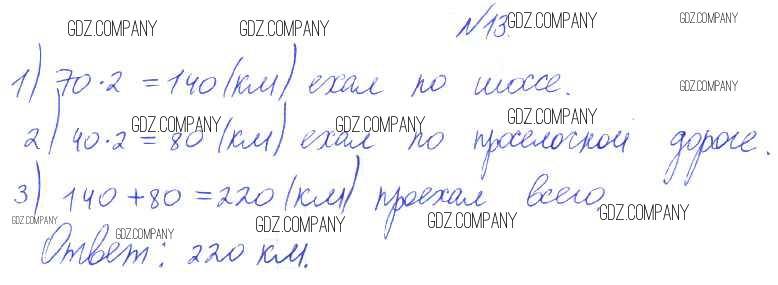 GDZ.COMPANY GDZ.COMPANY №13. GDZ.COMPANY GDZ.COMPANY
1) 70·2 = 140 (км) ехал по шоссе. GDZ.COMPANY
GDZ.COMPANY GDZ.COMPANY GDZ.COMPANY
2) 40·2 = 80 (км) ехал по проселочной дороге.
3) 140 + 80 = 220 (км) проехал всего.
GDZ.COMPANY GDZ.COMPANY GDZ.COMPANY GDZ.COMPANY GDZ.COMPANY
Ответ: 220 км.